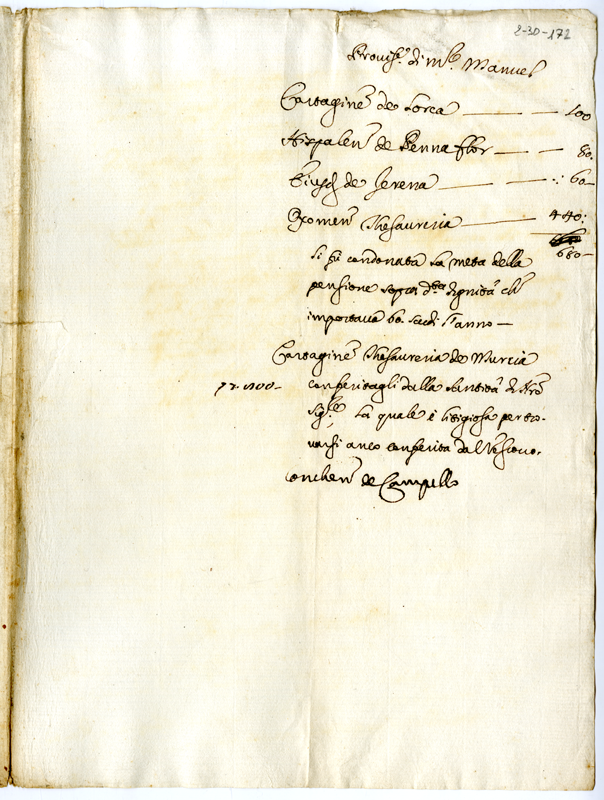 2-30-172
Provis.e di M.r Manuel
Cartaginen de Lorca — — 100
Hispalen de Penna flor — — 80.
Eiusd de Jerena — — 60—
Oxomen Thesaureria — 440:
680—
Si fù condonata la metà della
pensione sopra d.ta dignità che
importava 60. scudi l'anno —
Cartaginen Thesaureria de Murcia
conferitagli dalla Santità di Nro
Sig.re, la quale è litigiosa per tro-
varsi anco conferita dal Vescovo.
Conchen de Campillo